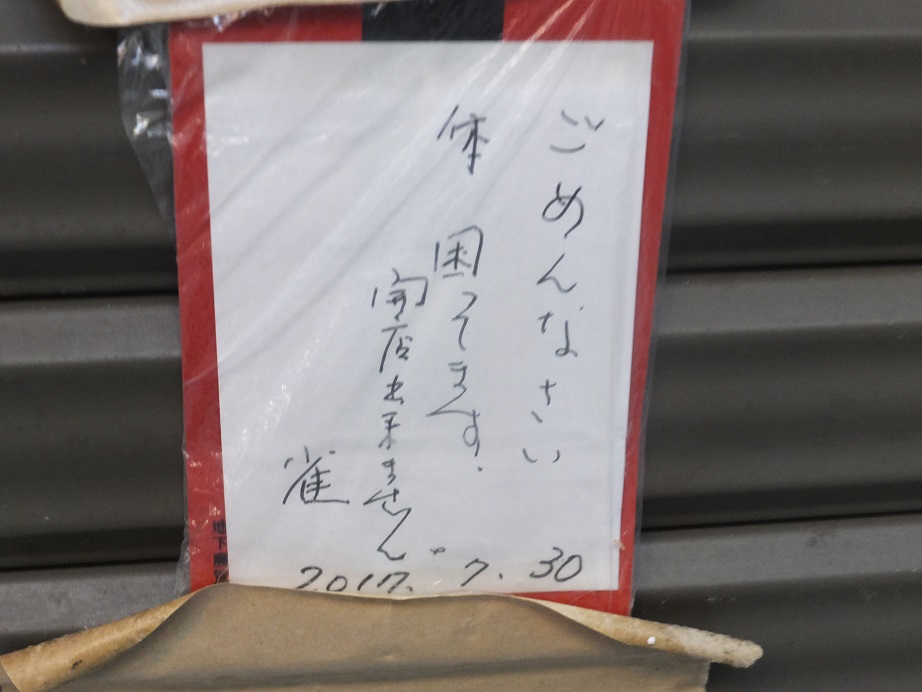 ごめんなさい
体 困ってます.
開店出来ません。
雀
2017. 7. 30
地下